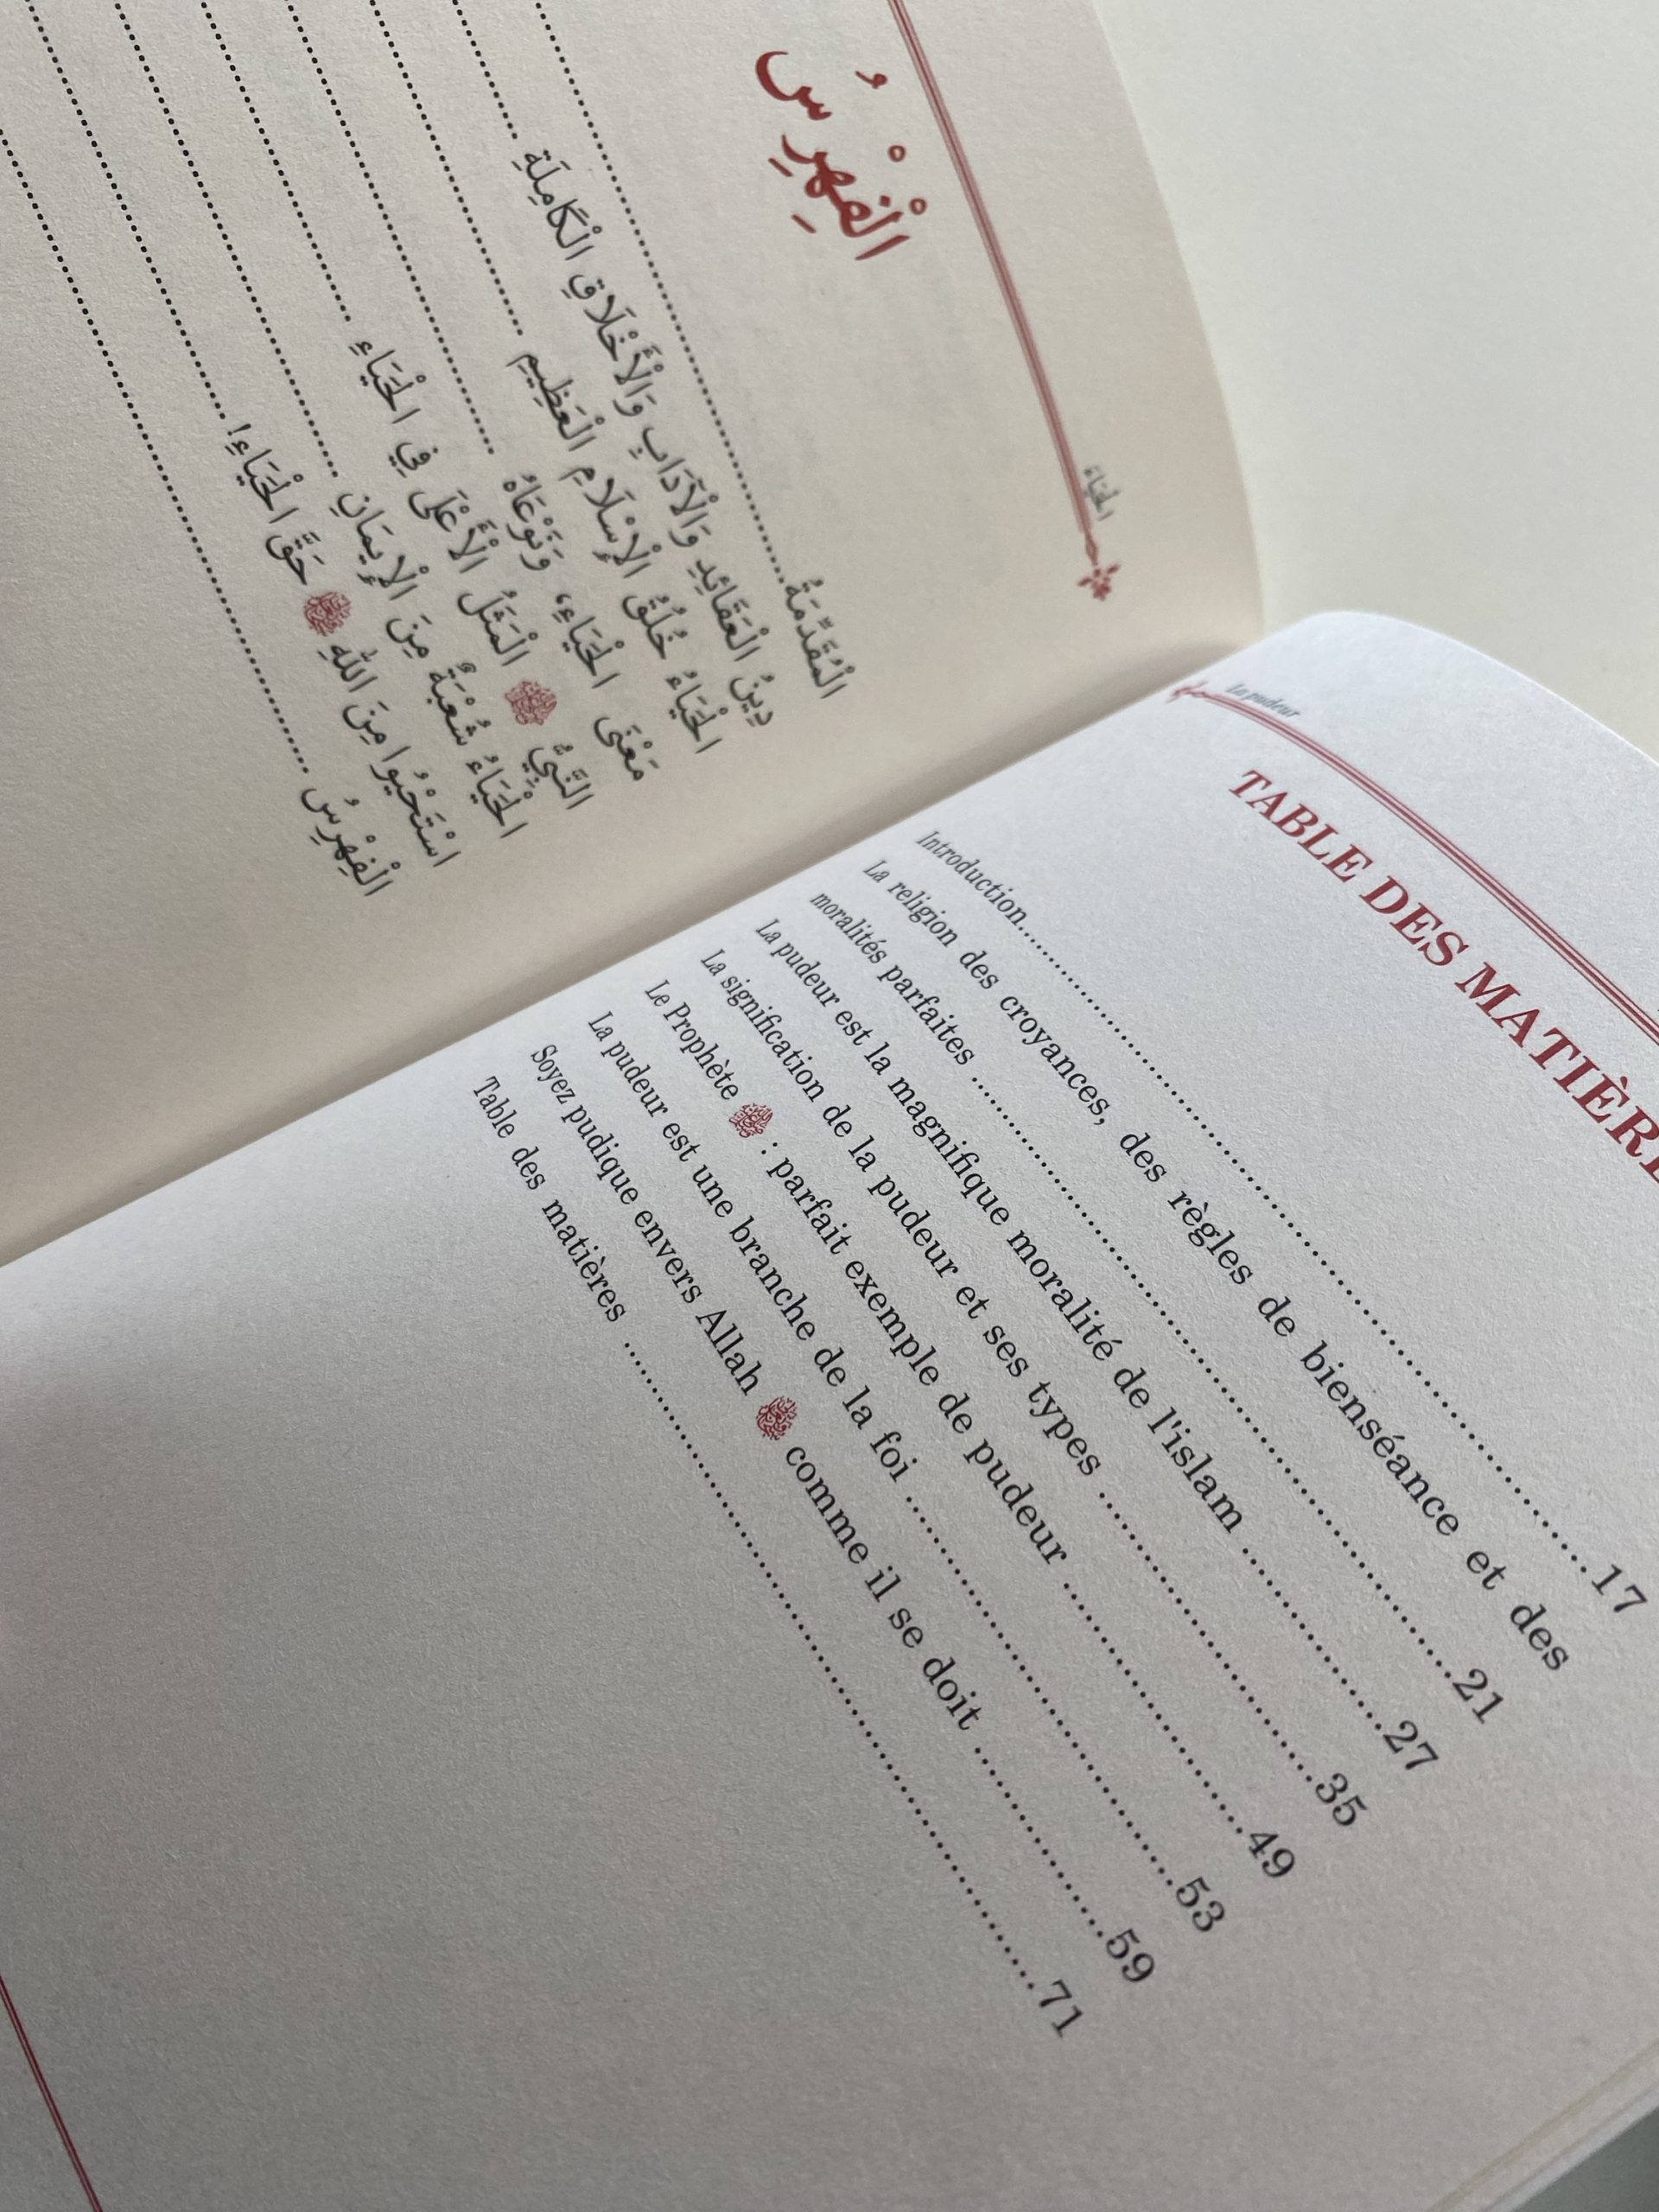 الْحَيَاءُ
الْفِهْرِسُ
الْمُقَدِّمَةُ
دِينُ الْعَقَائِدِ وَالْآدَابِ وَالْأَخْلَاقِ الْكَامِلَةِ
الْحَيَاءُ خُلُقُ الْإِسْلَامِ الْعَظِيمِ
مَعْنَى الْحَيَاءِ، وَنَوْعَاهُ
النَّبِيُّ ﷺ الْمَثَلُ الْأَعْلَى فِي الْحَيَاءِ
الْحَيَاءُ شُعْبَةٌ مِنَ الْإِيمَانِ
اسْتَحْيُوا مِنَ اللهِ حَقَّ الْحَيَاءِ!
الْفِهْرِسُ
La pudeur
TABLE DES MATIÈRE
Introduction..........17
La religion des croyances, des règles de bienséance et des
moralités parfaites ..........21
La pudeur est la magnifique moralité de l'islam ..........27
La signification de la pudeur et ses types ..........35
Le Prophète ﷺ : parfait exemple de pudeur ..........49
La pudeur est une branche de la foi ..........53
Soyez pudique envers Allah comme il se doit ..........59
Table des matières ..........71